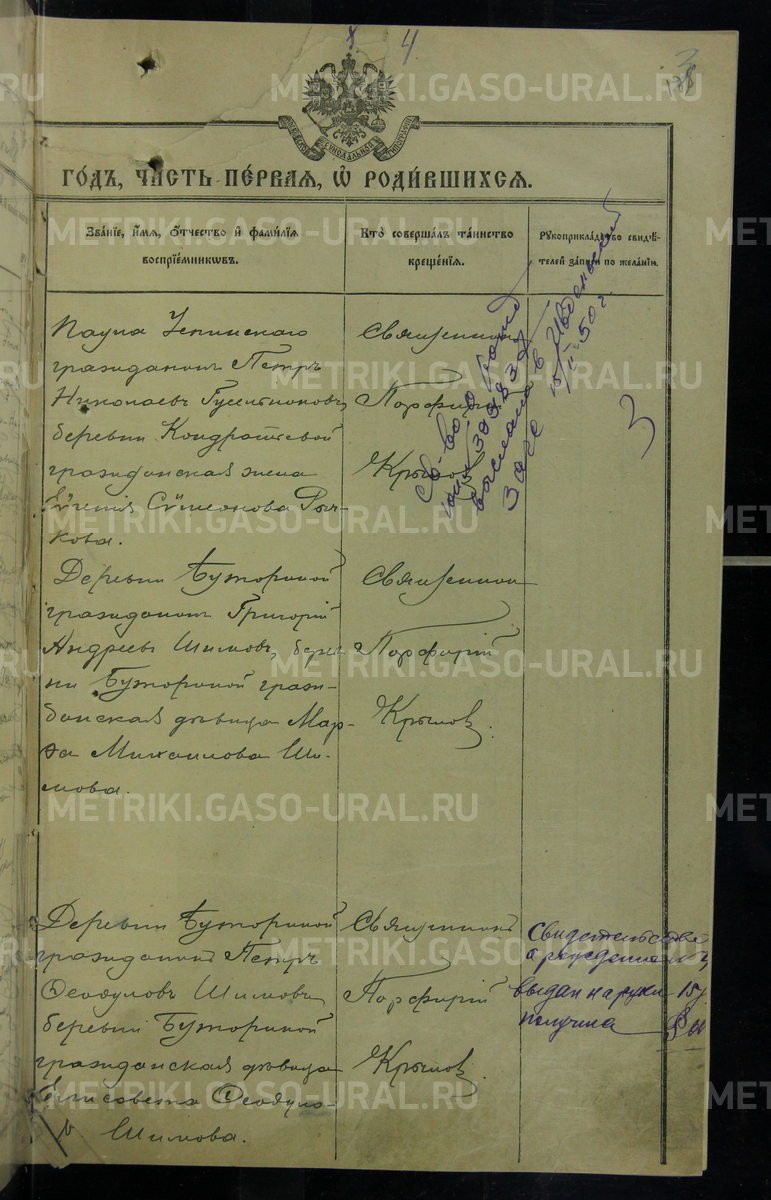 4
3
ГОДЪ, ЧАСТЬ ПЕРВАЯ, Ѡ РОДИВШИХСЯ.
Званіе, имя, отчество и фамилія
воспріемниковъ.
Кто совершалъ таинство
крещенія.
Рукоприкладство свидѣ-
телей записи по желанію.
гражданинъ Петръ
Николаевъ
деревни Кондратьевой
гражданская жена
Евгенія Сѵмеонова Рыч-
кова.
Священникъ
Порфирій
Крыловъ
3
Деревни Буториной
гражданинъ Григорій
Андреевъ Шимовъ, дерев-
ни Буториной граж-
данская дѣвица Мар-
ѳа Михаилова Ши-
мова.
Священникъ
Порфирій
Крыловъ.
Деревни Буториной
гражданинъ Петръ
Ѳеодуловъ Шимовъ,
деревни Буториной
гражданская дѣвица
Елисавета Ѳеодуло-
Шимова.
Священникъ
Порфирій
Крыловъ.
Свидетельство
о рождении
выдан на руки
получила
METRIKI.GASO-URAL.RU